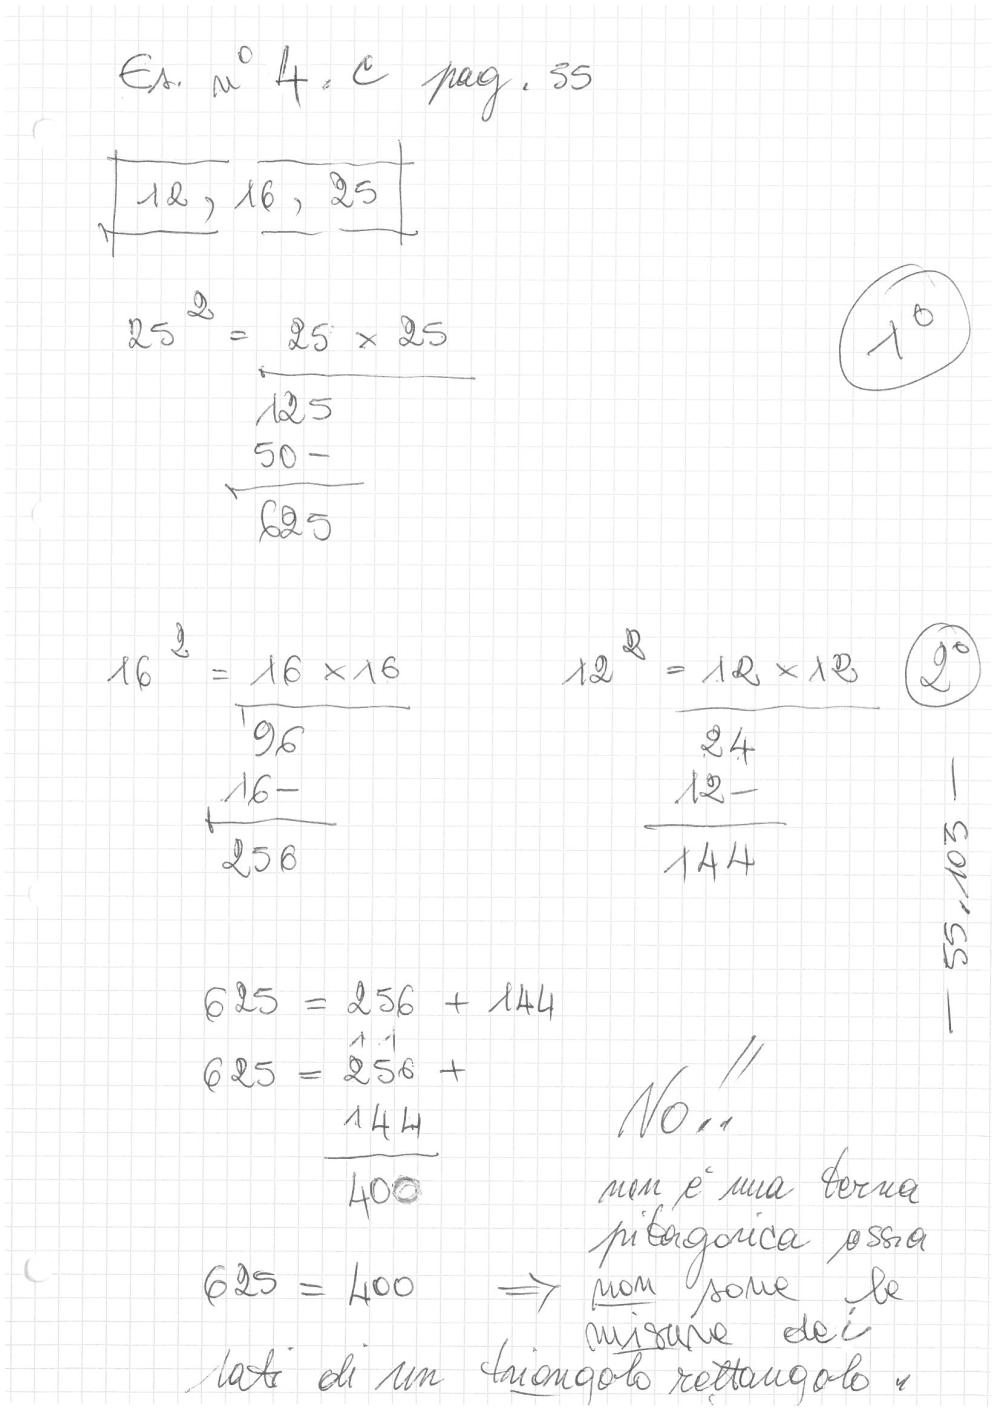 Es. n° 4.c pag. 55
12, 16, 25
1°
25² = 25 × 25
125
50 –
625
16² = 16 × 16
96
16 –
256
12² = 12 × 12
24
12 –
144
2°
— 55.103 —
625 = 256 + 144
1 1
625 = 256 +
144
400
No!!
non è una terna
pitagorica ossia
625 = 400 ⇒ non sono le
misure dei
lati di un triangolo rettangolo.